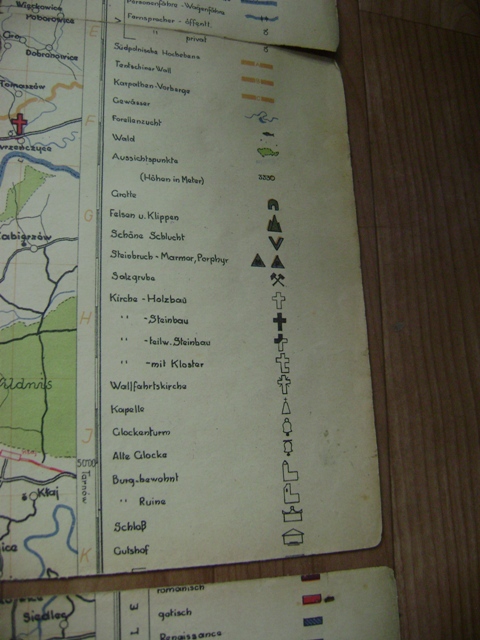 Personenfähre - Wagenfähre
Fernsprecher - öffentl.
" privat
Südpolnische Hochebene
Tentschiner Wall
Karpathen-Vorberge
Gewässer
Forellenzucht
Wald
Aussichtspunkte
(Höhen in Meter)
Grotte
Felsen u. Klippen
Schöne Schlucht
Steinbruch - Marmor, Porphyr
Salzgrube
Kirche - Holzbau
" - Steinbau
" - teilw. Steinbau
" - mit Kloster
Wallfahrtskirche
Kapelle
Glockenturm
Alte Glocke
Burg - bewohnt
" Ruine
Schloß
Gutshof
romanisch
gotisch
Renaissance
E
F
G
H
J
K
Poborowice
Dobranowice
Tomaszów
Wildnis
50°00'
Tarnów
Kłaj
L E